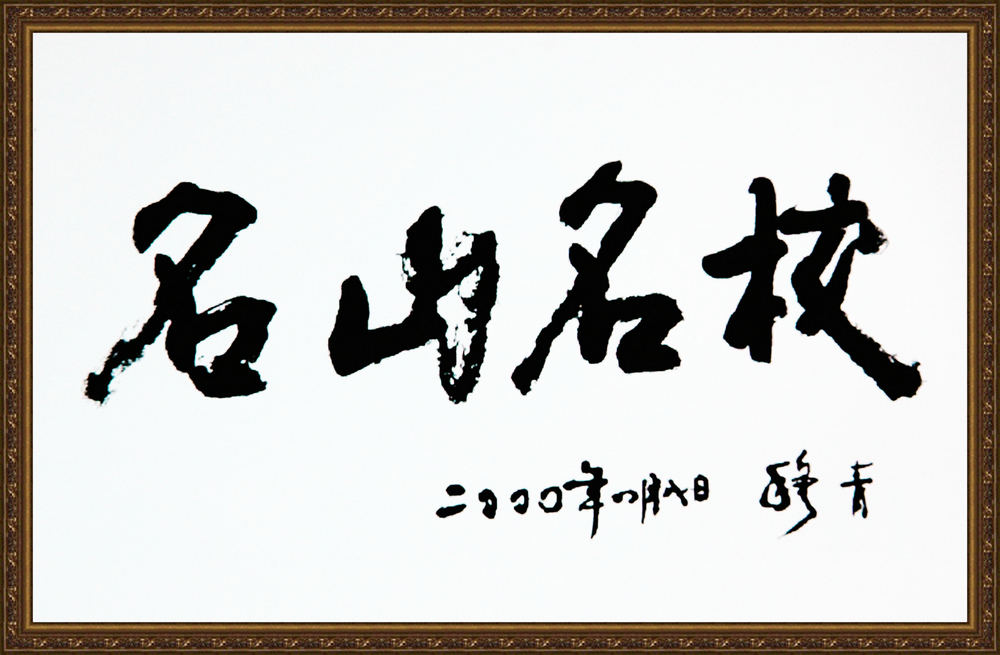 名山名校
二〇〇〇年四月十八日 青